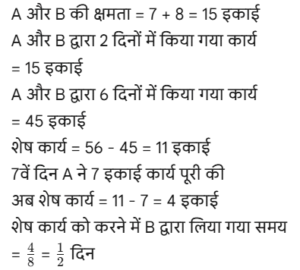 A और B की क्षमता = 7 + 8 = 15 इकाई
A और B द्वारा 2 दिनों में किया गया कार्य
= 15 इकाई
A और B द्वारा 6 दिनों में किया गया कार्य
= 45 इकाई
शेष कार्य = 56 - 45 = 11 इकाई
7वें दिन A ने 7 इकाई कार्य पूरी की
अब शेष कार्य = 11 - 7 = 4 इकाई
शेष कार्य को करने में B द्वारा लिया गया समय
= 4/8 = 1/2 दिन